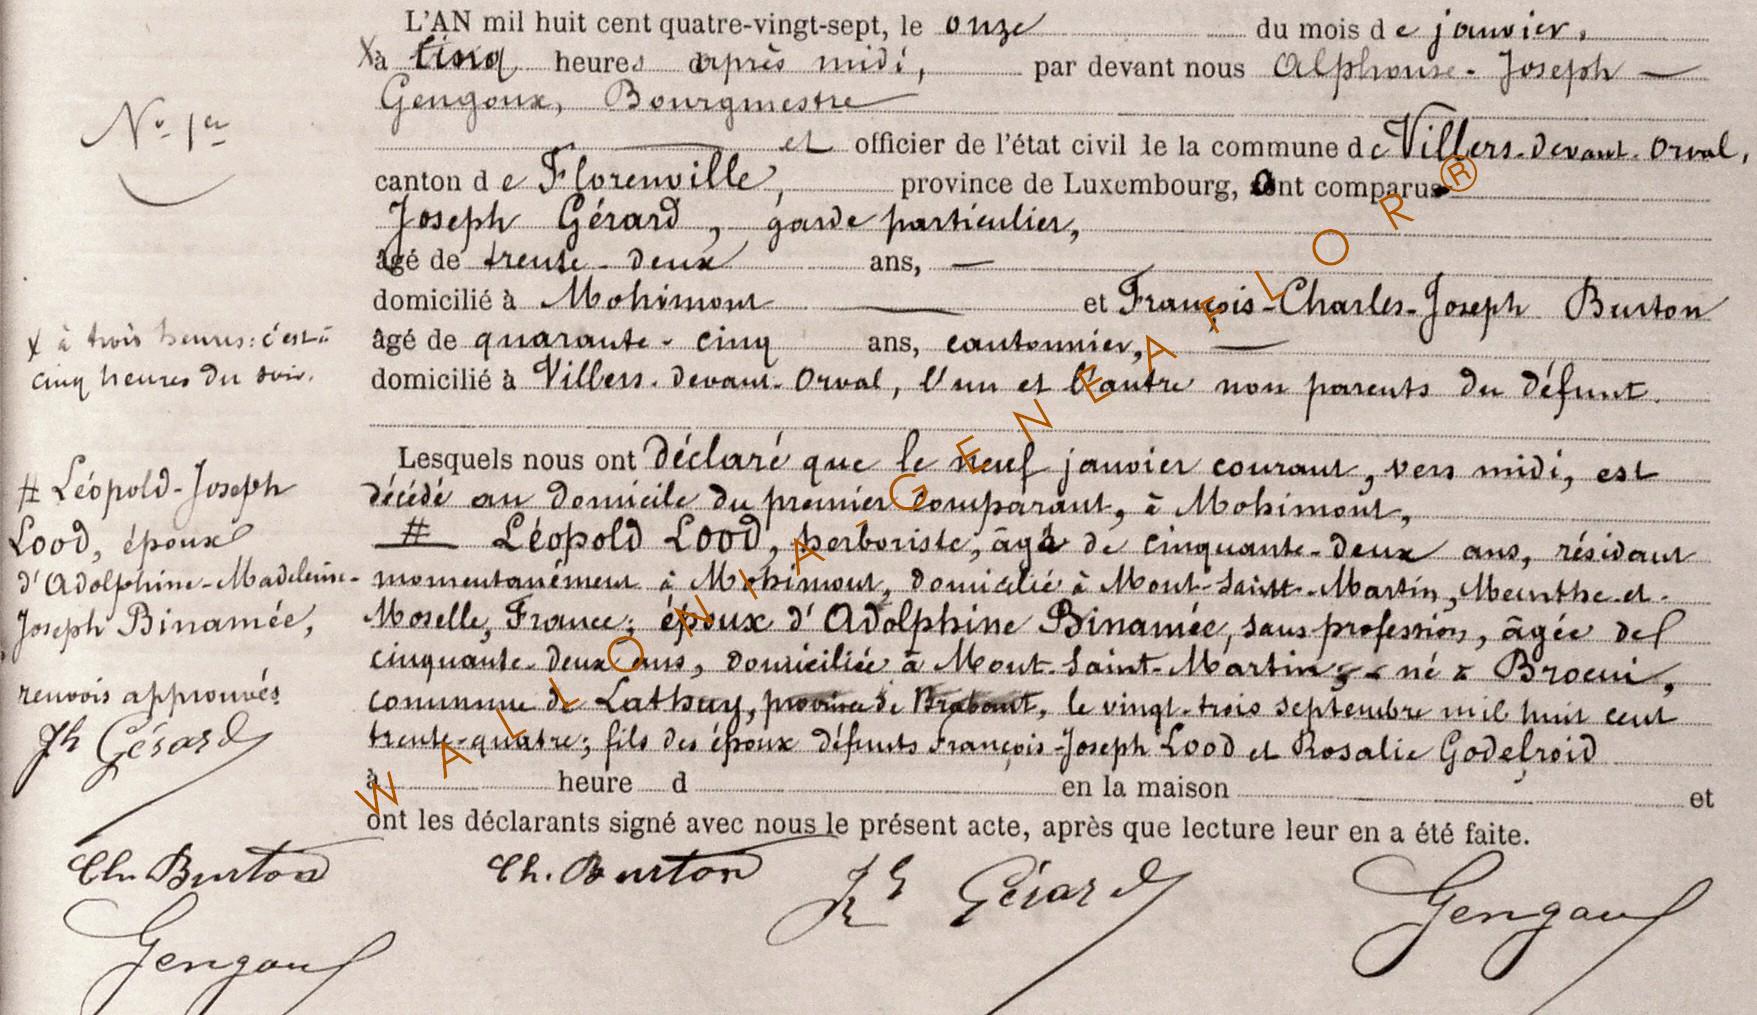 L'AN mil huit cent quatre-vingt-sept, le onze du mois de janvier,
X à cinq heures après midi, par devant nous Alphonse-Joseph —
Gengoux, Bourgmestre
N° 1er
et officier de l'état civil de la commune de Villers-devant-Orval,
canton de Florenville, province de Luxembourg, ont comparus
Joseph Gérard, garde particulier,
âgé de trente-deux ans, —
domicilié à Mohimont — et François-Charles-Joseph Burton
âgé de quarante-cinq ans, cantonnier, —
domicilié à Villers-devant-Orval, l'un et l'autre non parents du défunt.
X à trois heures: c'est à
cinq heures du soir.
Lesquels nous ont déclaré que le neuf janvier courant, vers midi, est
décédé au domicile du premier comparant, à Mohimont,
# Léopold Lood, herboriste, âgé de cinquante-deux ans, résidant
momentanément à Mohimont, domicilié à Mont-Saint-Martin, Meurthe-et-
Moselle, France; époux d'Adolphine Binamée, sans profession, âgée de
cinquante-deux ans, domiciliée à Mont-Saint-Martin; né à
commune de Lathuy, province de Brabant, le vingt-trois septembre mil huit cent
trente-quatre; fils des époux défunts François-Joseph Lood et Rosalie Godefroid
à heure d en la maison et
ont les déclarants signé avec nous le présent acte, après que lecture leur en a été faite.
# Léopold-Joseph
Lood, époux
d'Adolphine-Madeleine-
Joseph Binamée,
renvois approuvés
Jh Gérard
Ch. Burton
Gengoux
Ch. Burton Jh Gérard Gengoux
WALLONIA-GENEAFLOR®